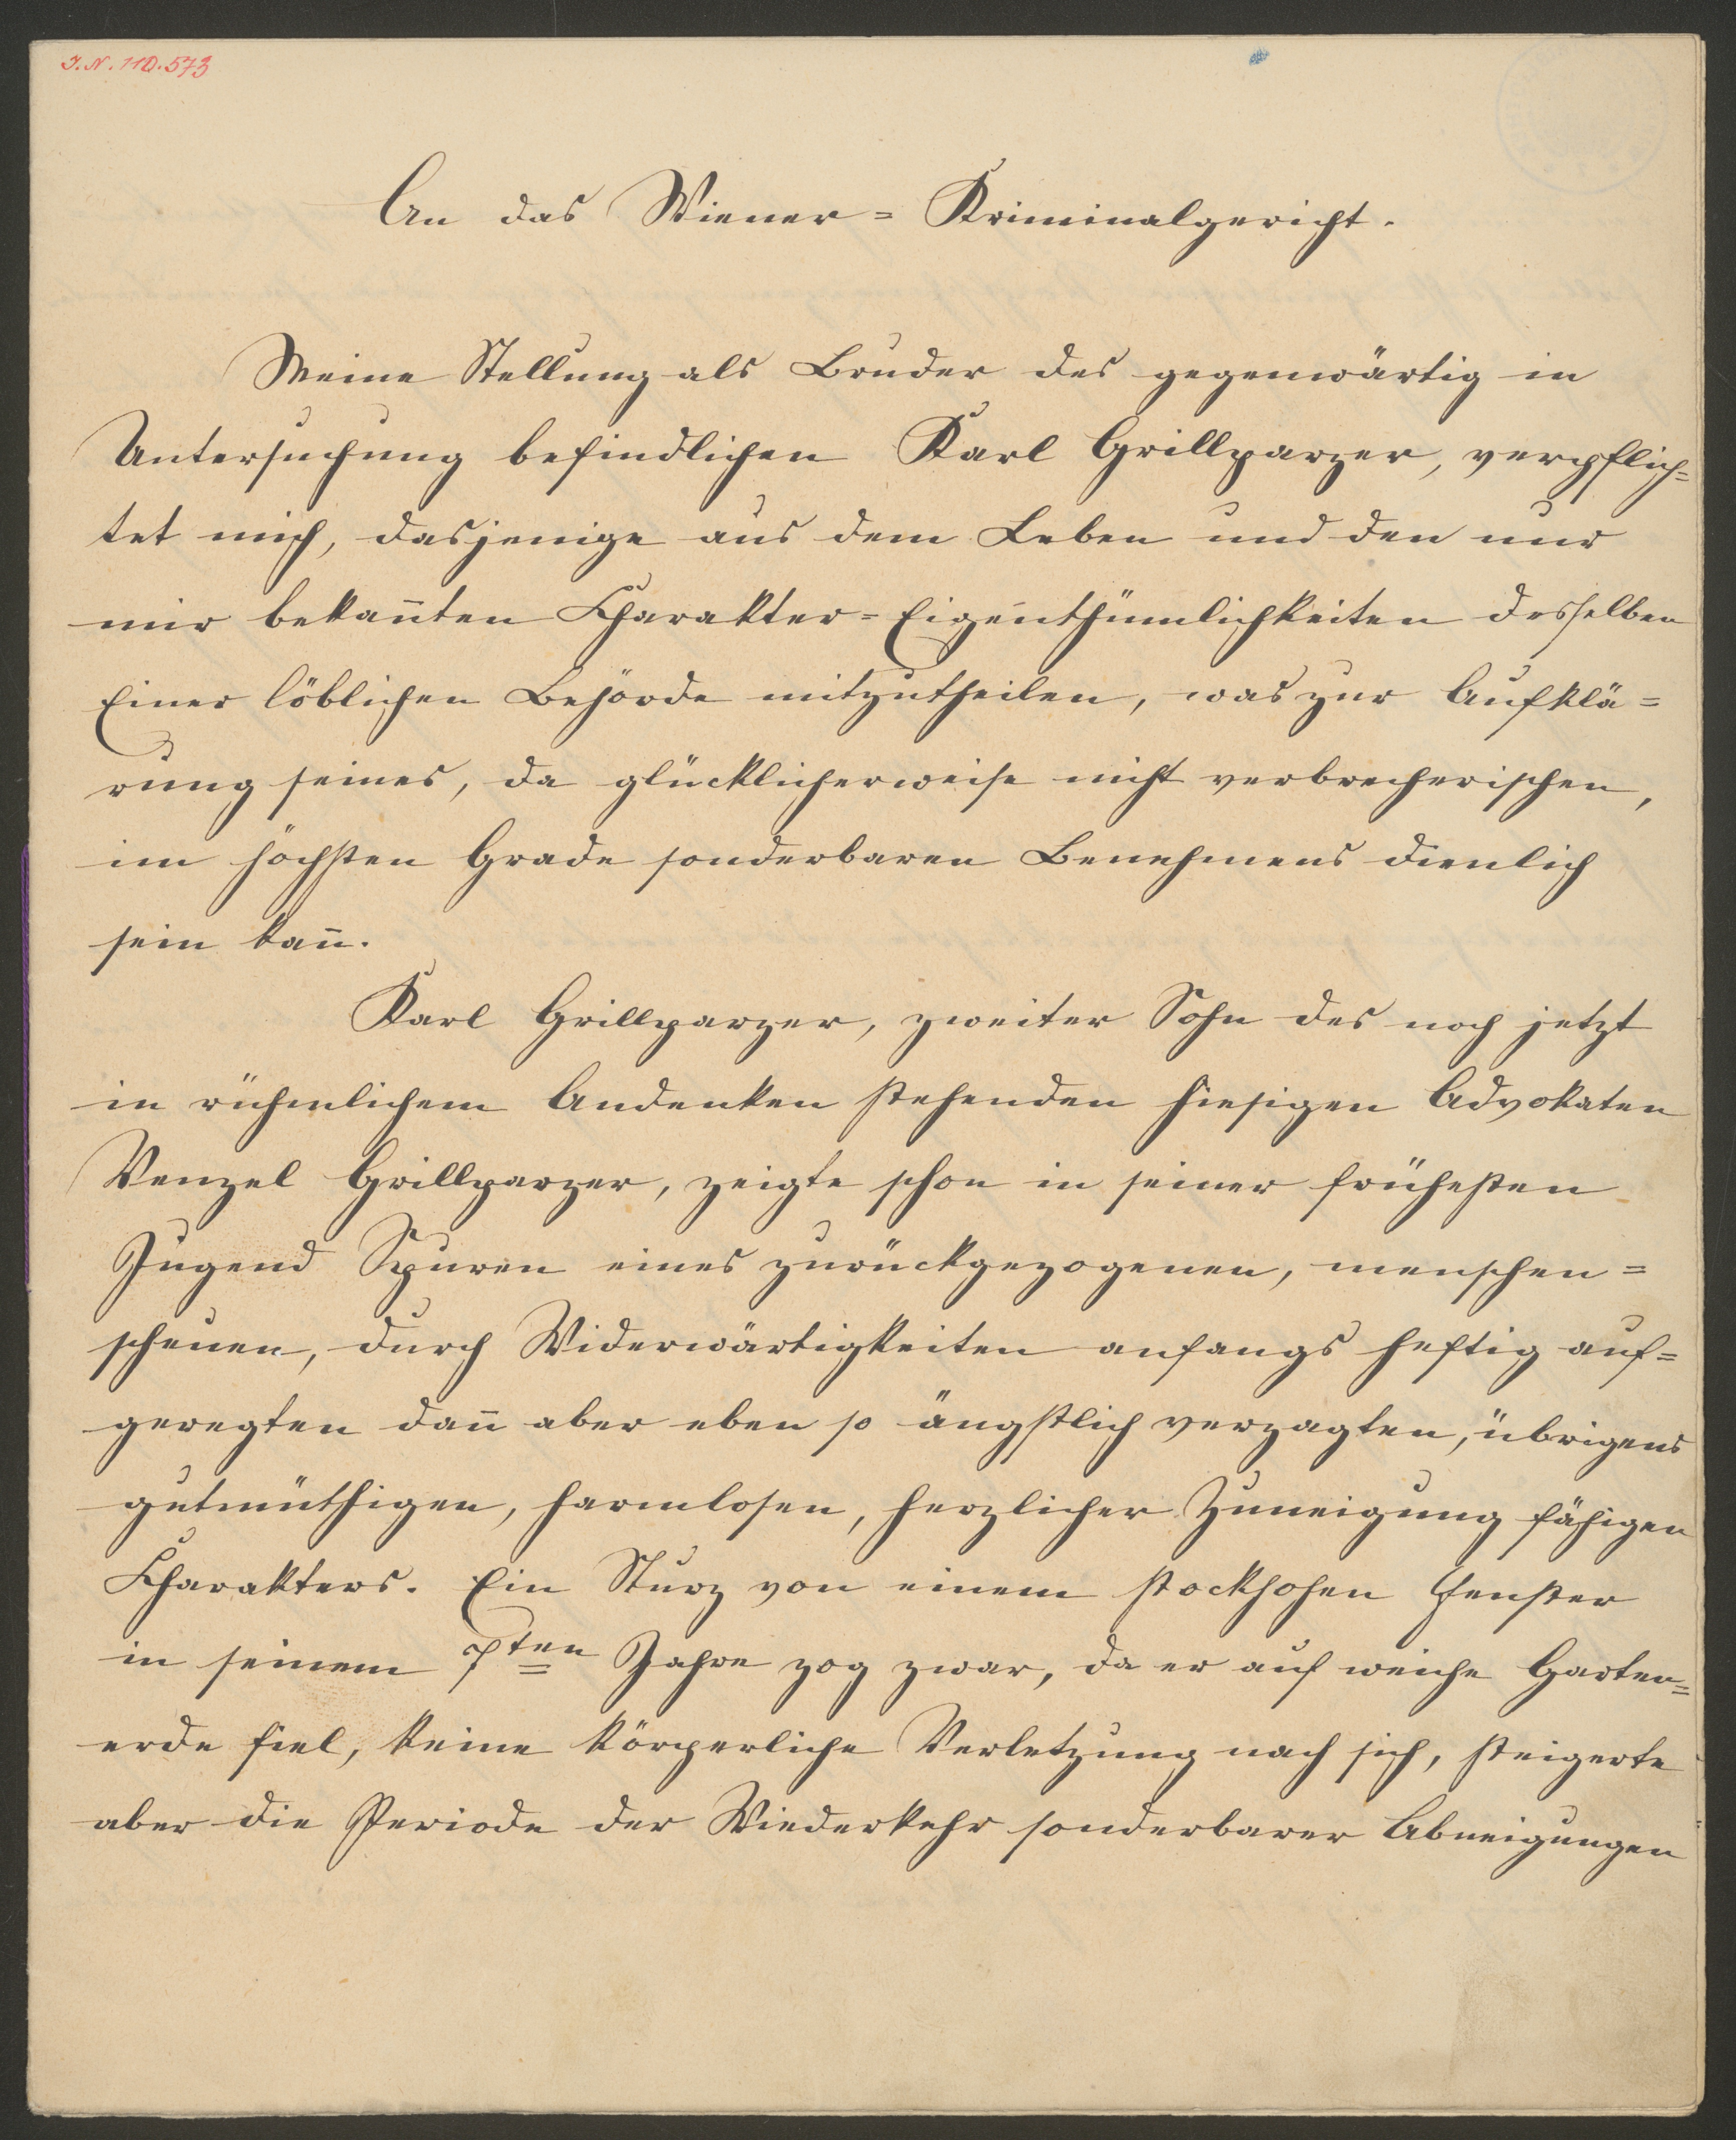 I.N. 110.573
An das Wiener=Kriminalgericht.
Meine Stellung als Bruder des gegenwärtig in
Untersuchung befindlichen Karl Grillparzer, verpflich=
tet mich, dasjenige aus dem Leben und den nur
mir bekan̅ten Charakter=Eigenthümlichkeiten desselben
Einer löblichen Behörde mitzutheilen, was zur Aufklä=
rung seines, da glücklicherweise nicht verbrecherischen,
im höchsten Grade sonderbaren Benehmens dienlich
sein kan̅.
Karl Grillparzer, zweiter Sohn des noch jetzt
in rühmlichem Andenken stehenden hiesigen Advokaten
Wenzel Grillparzer, zeigte schon in seiner frühesten
Jugend Spuren eines zurückgezogenen, menschen=
scheuen, durch Widerwärtigkeiten anfangs heftig auf=
geregten dan̅ aber eben so ängstlich verzagten, übrigens
gutmüthigen, harmlosen, herzlicher Zuneigung fähigen
Charakters. Ein Sturz von einem stockhohen Fenster
in seinem 7ten Jahre zog zwar, da er auf weiche Garten=
erde fiel, keine körperliche Verletzung nach sich, steigerte
aber die Periode der Wiederkehr sonderbarer Abneigungen